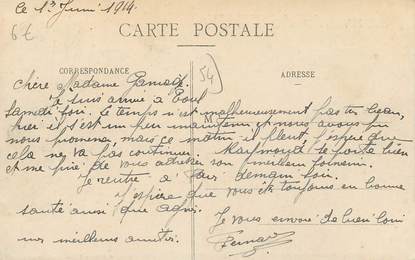 Le 1er Juin 1914
6t
CARTE POSTALE
54
CORRESPONDANCE
ADRESSE
Chère Madame
Je suis arrivé à Toul
samedi soir. Le temps n'est malheureusement pas très beau,
hier il s'est un peu maintenu et nous avons pu
M
nous promener, mais ce matin il pleut. J'espère que
cela ne va pas continuer. Raymond se porte bien
et me prie de vous adresser son meilleur souvenir.
Je rentre à demain soir.
J'espère que vous êtes toujours en bonne
santé ainsi que
Je vous envoie de bien loin
mes meilleures amitiés.
Fernand